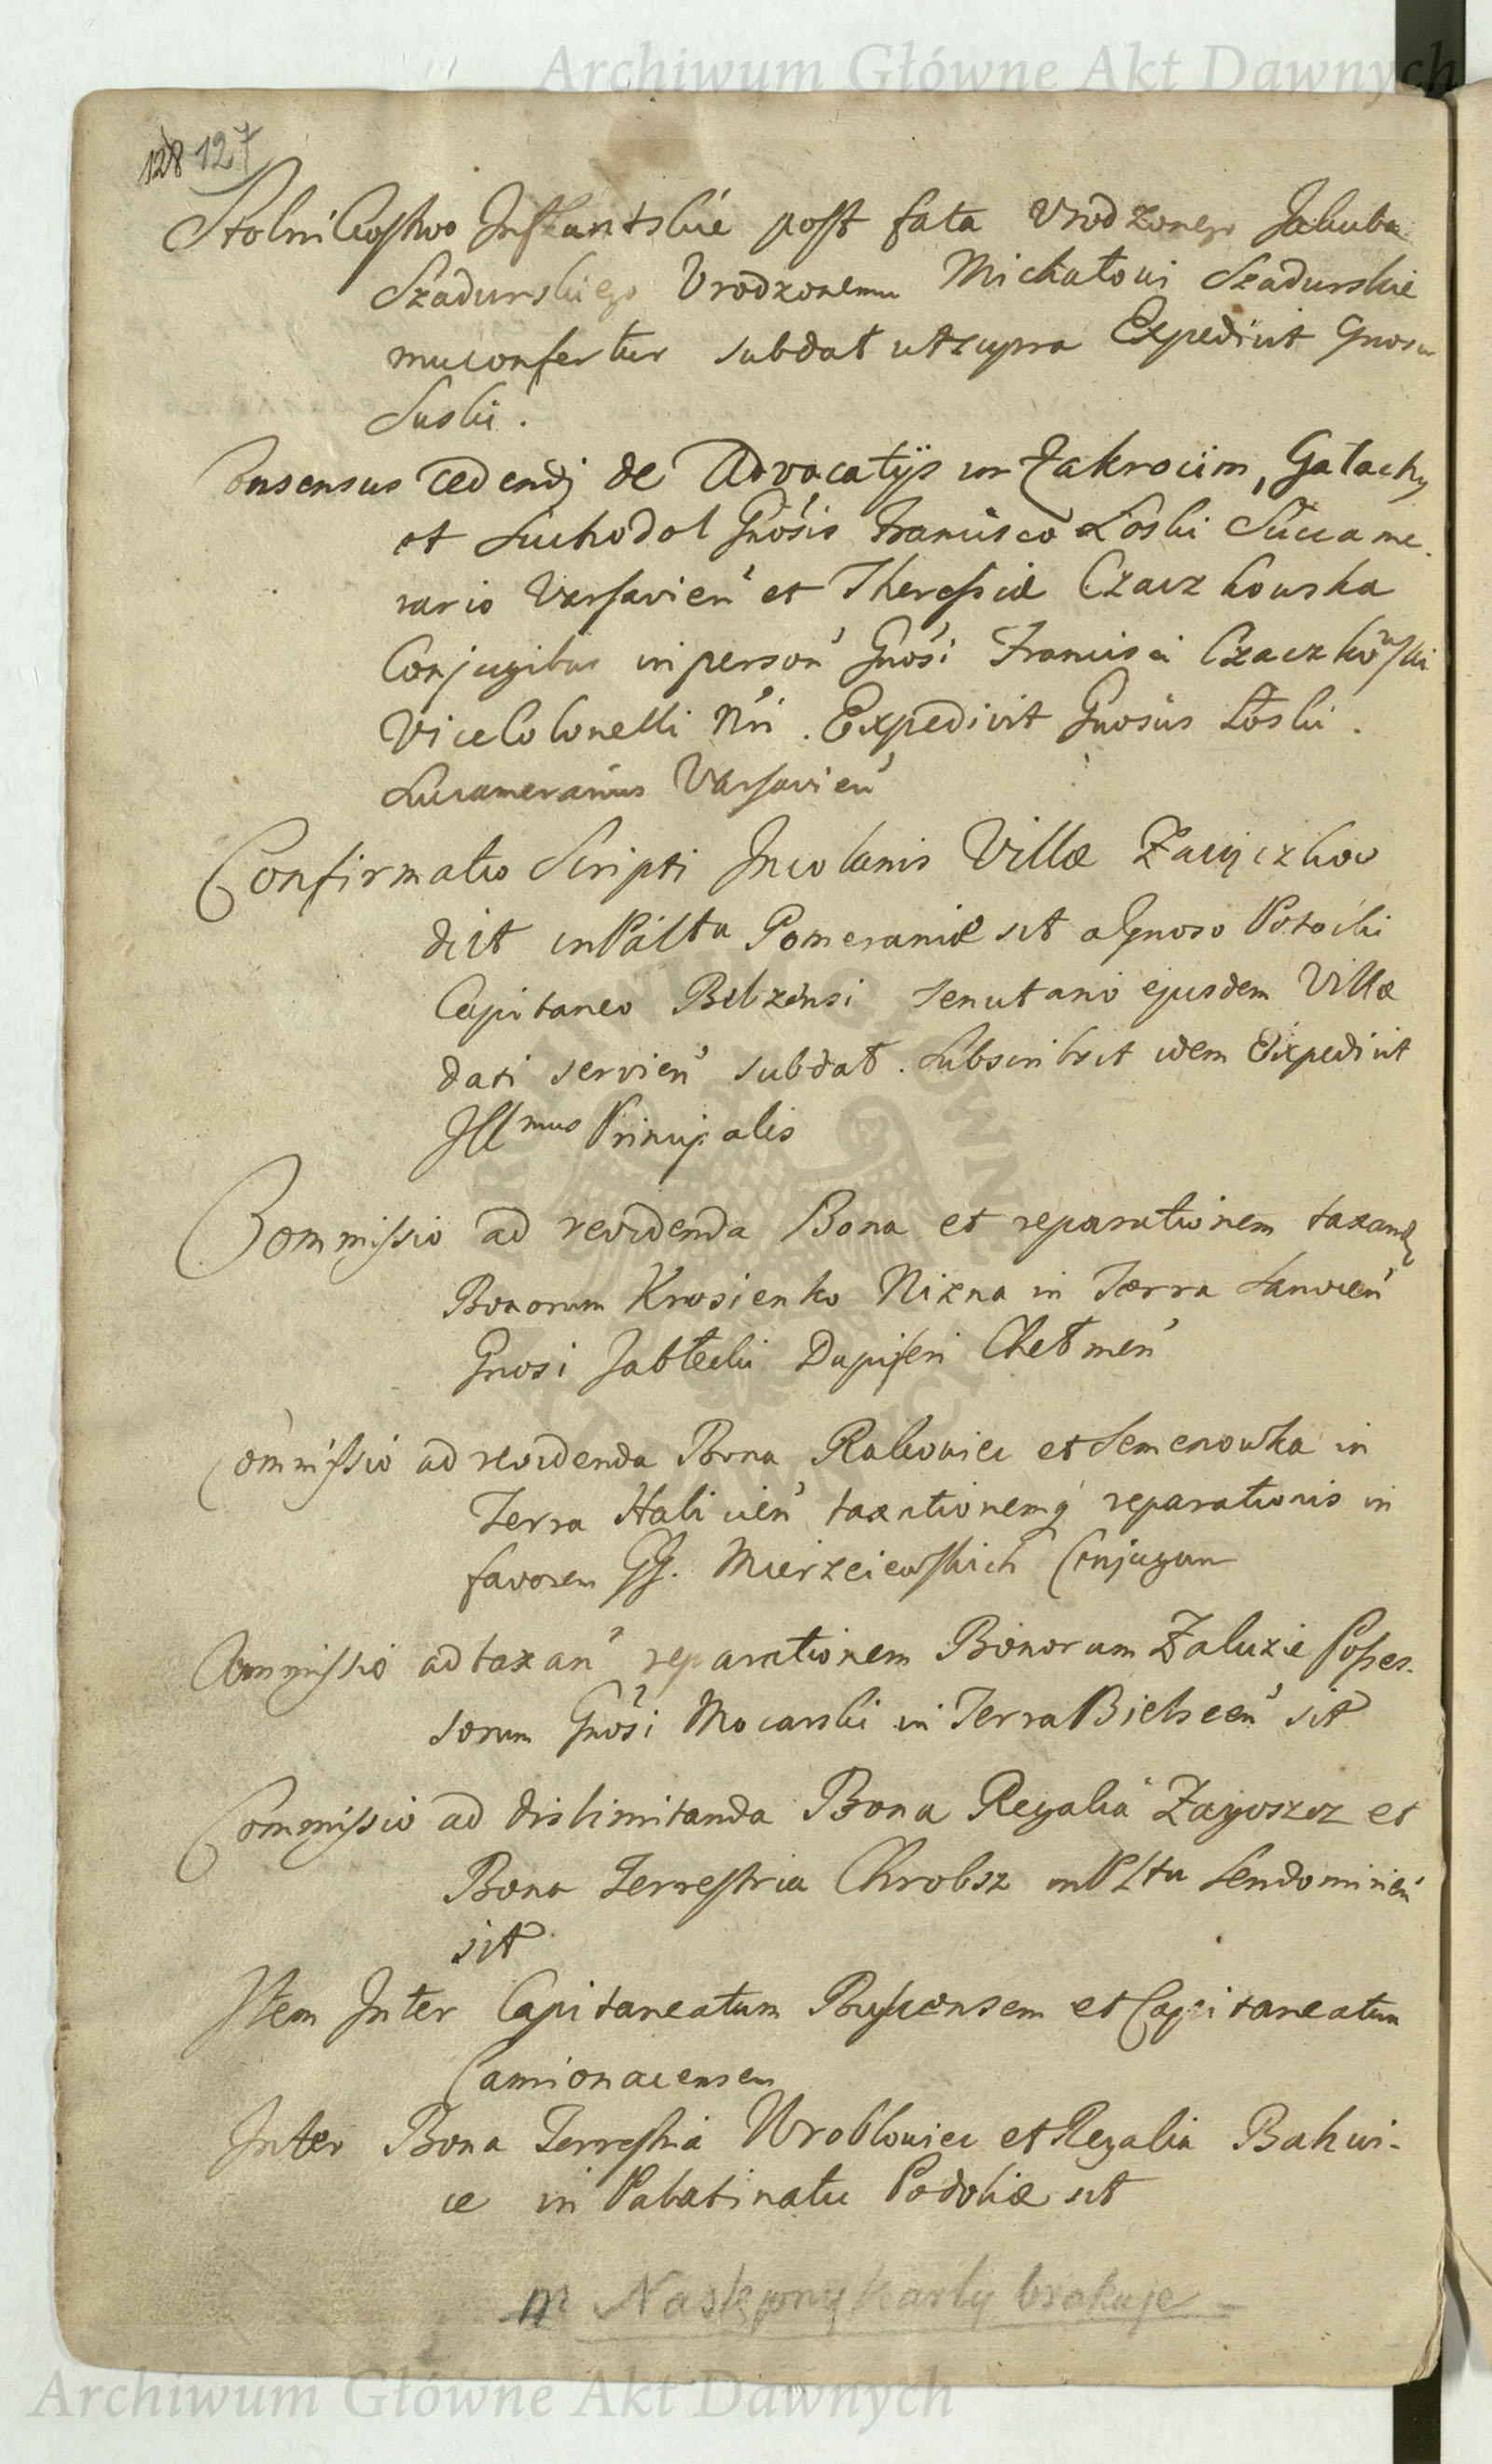 Archiwum Główne Akt Dawnych
128 127
Stolnikostwo Inflantskie post fata Vrodzonego Jakuba
Szadurskiego Vrodzonemu Michałowi Szadurskie
mu confertur sub dat ut supra Expedivit Gnosus
Suski.
Consensus cedendi de Advocatijs in Zakrocim, Gałachy
et Suchodol Gnosis Francisco Łoski Succame
rario Varsavien et Theressiæ Czaczkowska
Conjugibus in person Gnosi Francisci Czaczkowski
Vice Colonelli Nri. Expedivit Gnosus Łoski.
Succamerarius Varsavien
Confirmatio Scripti Incolanis Villæ Zajączkow
dict in Palttu Pomeraniæ sit a Gnoso Potocki
Capitaneo Belzensi tenutario ejusdem Villæ
dati servien sub dat. Subscribsit idem Expedivit
Illmus Principalis
Commissio ad revidenda Bona et reparationem taxand
Bonorum Krosienko Nizna in Terra Sanocen
Gnosi Jabłecki Dapiferi Chełmen
Commissio ad revidenda Bona Rakowiec et Semenowka in
Terra Halicien taxationemq reparationis in
favorem GG. Mierzeiewskich Conjugum
Commissio ad taxan reparationem Bonorum Załuzie Posses-
sorum Gnosi Mocarski in Terra Bielscen sit
Commissio ad dislimitanda Bona Regalia Zagoszcz et
Bona Terrestria Chrobsz in Pltu Sendomirien
sit
Item Inter Capitaneatum Buscensem et Capitaneatum
Camionacensem
Inter Bona Terrestria Wroblowiec et Regalia Bakwi-
ce in Palatinatu Podoliæ sit
Następnej karty brakuje
Archiwum Główne Akt Dawnych